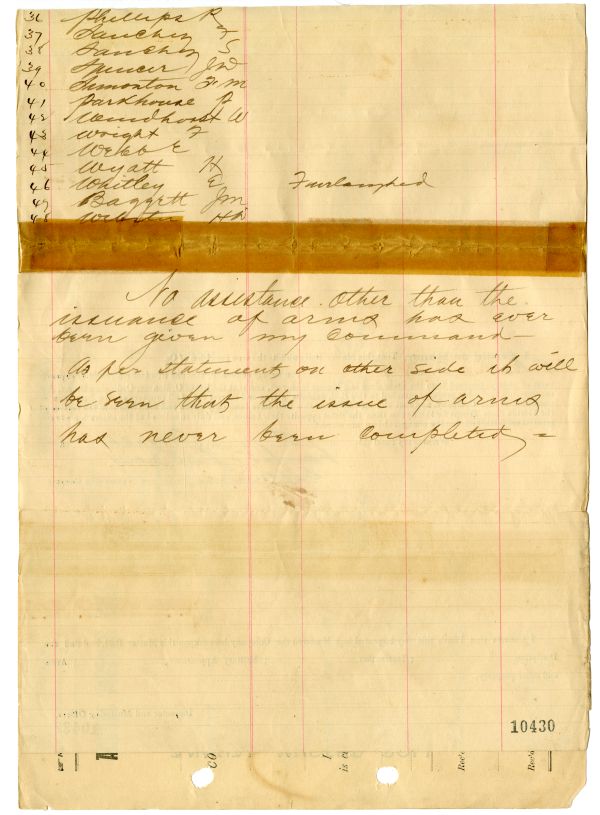 36 Phillips R
37 Sanchez F
38 Sanchez S
39 Spencer JW
40 Simonton F M
41 Parkhouse A
42 W
43 Wright F
44 Webb E
45 Wyatt H
46 Whitley E Furloughed
47 Baggett JM
48 Webster
No assistance other than the
issuance of arms has ever
been given my command—
As per statement on other side it will
be seen that the issue of arms
has never been completed—
10430
CO
is c
Rec'd
Rec'd